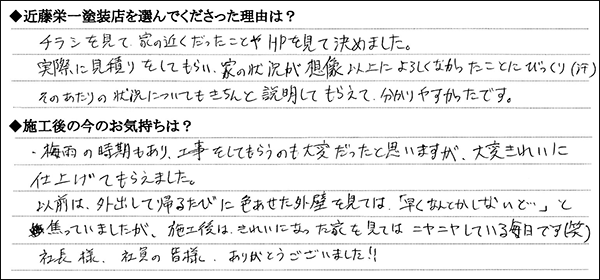 ◆近藤栄一塗装店を選んでくださった理由は？
チラシを見て、家の近くだったことやHPを見て決めました。
実際に見積りをしてもらい、家の状況が想像以上によろしくなかったことにびっくり(汗)
そのあたりの状況についてもきちんと説明してもらえて、分かりやすかったです。
◆施工後の今のお気持ちは？
・梅雨の時期もあり、工事をしてもらうのも大変だったと思いますが、大変きれいに
仕上げてもらえました。
以前は、外出して帰るたびに色あせた外壁を見ては、「早くなんとかしないと…」と
焦っていましたが、施工後は、きれいになった家を見てはニヤニヤしている毎日です(笑)
社長様、社員の皆様、ありがとうございました!!